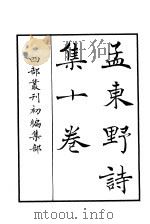 孟東野詩
集十卷
四部叢刊初編集部